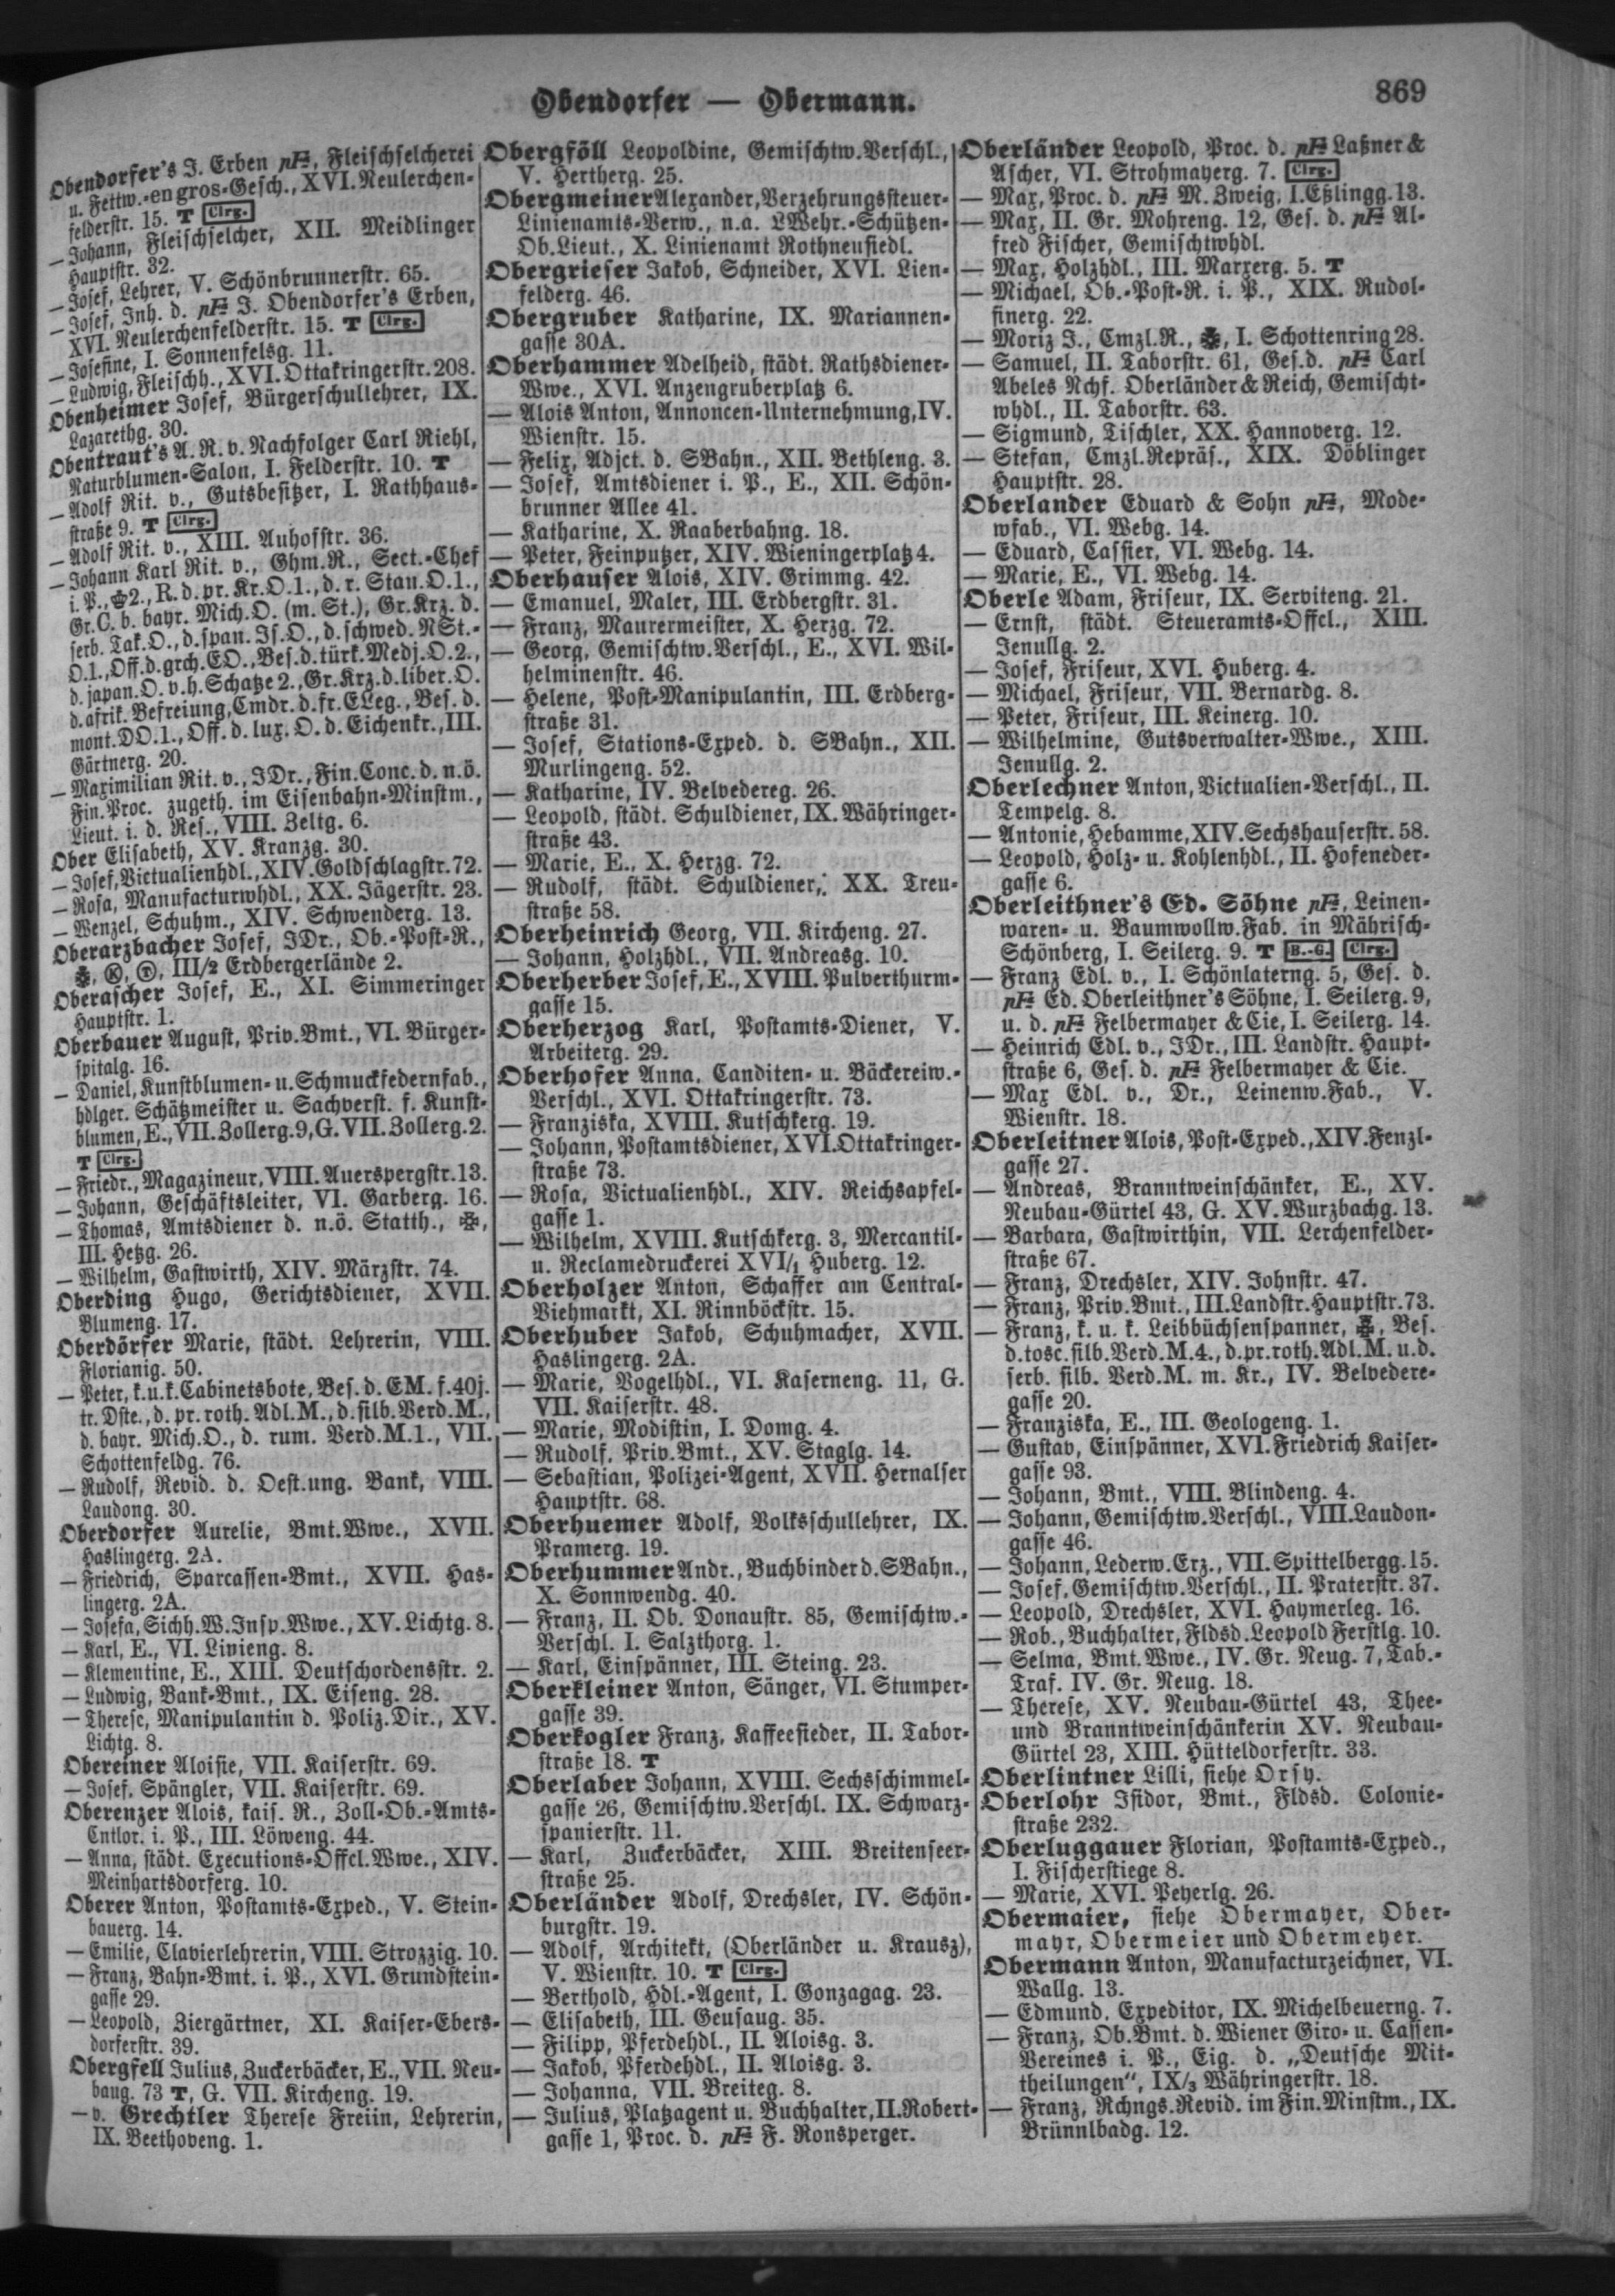 Obendorfer — Obermann.
869
Obendorfer's J. Erben pF=, Fleischselcherei
u. Fettw.-en gros-Gesch., XVI. Neulerchen-
felderstr. 15. T Clrg.
— Johann, Fleischselcher, XII. Meidlinger
Hauptstr. 32.
— Josef, Lehrer, V. Schönbrunnerstr. 65.
— Josef, Inh. d. pF= J. Obendorfer's Erben,
XVI. Neulerchenfelderstr. 15. T Clrg.
— Josefine, I. Sonnenfelsg. 11.
— Ludwig, Fleischh., XVI. Ottakringerstr. 208.
Obenheimer Josef, Bürgerschullehrer, IX.
Lazarethg. 30.
Obentraut's A. R. v. Nachfolger Carl Riehl,
Naturblumen-Salon, I. Felderstr. 10. T
— Adolf Rit. v., Gutsbesitzer, I. Rathhaus-
straße 9. T Clrg.
— Adolf Rit. v., XIII. Auhofstr. 36.
— Johann Karl Rit. v., Ghm.R., Sect.-Chef
i. P., 2., R. d. pr. Kr.O.1., d. r. Stan.O.1.,
Gr.C. b. bayr. Mich.O. (m. St.), Gr.Krz. d.
serb. Tak.O., d. span. Is.O., d. schwed. NSt.-
O.1., Off. d. grch. EO., Bes. d. türk. Medj.O.2.,
d. japan. O. v. h. Schatze 2., Gr.Krz. d. liber. O.
d. afrik. Befreiung, Cmdr. d. fr. ELeg., Bes. d.
mont. DO.1., Off. d. lux. O. d. Eichenkr., III.
Gärtnerg. 20.
— Maximilian Rit. v., JDr., Fin.Conc. d. n.ö.
Fin.Proc. zugeth. im Eisenbahn-Minstm.,
Lieut. i. d. Res., VIII. Zeltg. 6.
Ober Elisabeth, XV. Kranzg. 30.
— Josef, Victualienhdl., XIV. Goldschlagstr. 72.
— Rosa, Manufacturwhdl., XX. Jägerstr. 23.
— Wenzel, Schuhm., XIV. Schwenderg. 13.
Oberarzbacher Josef, JDr., Ob.-Post-R.,
K, T, III/2 Erdbergerlände 2.
Oberascher Josef, E., XI. Simmeringer
Hauptstr. 1.
Oberbauer August, Priv.Bmt., VI. Bürger-
spitalg. 16.
— Daniel, Kunstblumen- u. Schmuckfedernfab.,
hdlger. Schätzmeister u. Sachverst. f. Kunst-
blumen, E., VII. Zollerg. 9, G. VII. Zollerg. 2.
T Clrg.
— Friedr., Magazineur, VIII. Auerspergstr. 13.
— Johann, Geschäftsleiter, VI. Garberg. 16.
— Thomas, Amtsdiener d. n.ö. Statth.,
III. Hetzg. 26.
— Wilhelm, Gastwirth, XIV. Märzstr. 74.
Oberding Hugo, Gerichtsdiener, XVII.
Blumeng. 17.
Oberdörfer Marie, städt. Lehrerin, VIII.
Florianig. 50.
— Peter, k. u. k. Cabinetsbote, Bes. d. EM. f. 40j.
tr. Dste., d. pr. roth. Adl.M., d. silb. Verd.M.,
d. bayr. Mich.O., d. rum. Verd.M.1., VII.
Schottenfeldg. 76.
— Rudolf, Revid. d. Oest.ung. Bank, VIII.
Laudong. 30.
Oberdorfer Aurelie, Bmt.Wwe., XVII.
Haslingerg. 2A.
— Friedrich, Sparcassen-Bmt., XVII. Has-
lingerg. 2A.
— Josefa, Sichh.W.Insp.Wwe., XV. Lichtg. 8.
— Karl, E., VI. Livieng. 8.
— Klementine, E., XIII. Deutschordensstr. 2.
— Ludwig, Bank-Bmt., IX. Eiseng. 28.
— Therese, Manipulantin d. Poliz.Dir., XV.
Lichtg. 8.
Obereiner Aloisie, VII. Kaiserstr. 69.
— Josef, Spängler, VII. Kaiserstr. 69.
Oberenzer Alois, kais. R., Zoll-Ob.-Amts-
Cntlor. i. P., III. Löweng. 44.
— Anna, städt. Executions-Offcl.Wwe., XIV.
Meinhartsdorferg. 10.
Oberer Anton, Postamts-Exped., V. Stein-
bauerg. 14.
— Emilie, Clavierlehrerin, VIII. Strozzig. 10.
— Franz, Bahn-Bmt. i. P., XVI. Grundstein-
gasse 29.
— Leopold, Ziergärtner, XI. Kaiser-Ebers-
dorferstr. 39.
Obergfell Julius, Zuckerbäcker, E., VII. Neu-
baug. 73 T, G. VII. Kircheng. 19.
— v. Grechtler Therese Freiin, Lehrerin,
IX. Beethoveng. 1.
Obergföll Leopoldine, Gemischtw.Verschl.,
V. Hertherg. 25.
Obergmeiner Alexander, Verzehrungssteuer-
Linienamts-Verw., n.a. LWehr.-Schützen-
Ob.Lieut., X. Linienamt Rothneusiedl.
Obergrieser Jakob, Schneider, XVI. Lien-
felderg. 46.
Obergruber Katharine, IX. Mariannen-
gasse 30A.
Oberhammer Adelheid, städt. Rathsdiener-
Wwe., XVI. Anzengruberplatz 6.
— Alois Anton, Annoncen-Unternehmung, IV.
Wienstr. 15.
— Felix, Adjct. d. SBahn., XII. Bethleng. 3.
— Josef, Amtsdiener i. P., E., XII. Schön-
brunner Allee 41.
— Katharine, X. Raaberbahng. 18.
— Peter, Feinputzer, XIV. Wieningerplatz 4.
Oberhauser Alois, XIV. Grimmg. 42.
— Emanuel, Maler, III. Erdbergstr. 31.
— Franz, Maurermeister, X. Herzg. 72.
— Georg, Gemischtw.Verschl., E., XVI. Wil-
helminenstr. 46.
— Helene, Post-Manipulantin, III. Erdberg-
straße 31.
— Josef, Stations-Exped. d. SBahn., XII.
Murlingeng. 52.
— Katharine, IV. Belvedereg. 26.
— Leopold, städt. Schuldiener, IX. Währinger-
straße 43.
— Marie, E., X. Herzg. 72.
— Rudolf, städt. Schuldiener, XX. Treu-
straße 58.
Oberheinrich Georg, VII. Kircheng. 27.
— Johann, Holzhdl., VII. Andreasg. 10.
Oberherber Josef, E., XVIII. Pulverthurm-
gasse 15.
Oberherzog Karl, Postamts-Diener, V.
Arbeiterg. 29.
Oberhofer Anna, Canditen- u. Bäckereiw.-
Verschl., XVI. Ottakringerstr. 73.
— Franziska, XVIII. Kutschkerg. 19.
— Johann, Postamtsdiener, XVI. Ottakringer-
straße 73.
— Rosa, Victualienhdl., XIV. Reichsapfel-
gasse 1.
— Wilhelm, XVIII. Kutschkerg. 3, Mercantil-
u. Reclamedruckerei XVI/1 Huberg. 12.
Oberholzer Anton, Schaffer am Central-
Viehmarkt, XI. Rinnböckstr. 15.
Oberhuber Jakob, Schuhmacher, XVII.
Haslingerg. 2A.
— Marie, Vogelhdl., VI. Kaserneng. 11, G.
VII. Kaiserstr. 48.
— Marie, Modistin, I. Domg. 4.
— Rudolf, Priv.Bmt., XV. Staglg. 14.
— Sebastian, Polizei-Agent, XVII. Hernalser
Hauptstr. 68.
Oberhuemer Adolf, Volksschullehrer, IX.
Pramerg. 19.
Oberhummer Andr., Buchbinder d. SBahn.,
X. Sonnwendg. 40.
— Franz, II. Ob. Donaustr. 85, Gemischtw.-
Verschl. I. Salzthorg. 1.
— Karl, Einspänner, III. Steing. 23.
Oberkleiner Anton, Sänger, VI. Stumper-
gasse 39.
Oberkogler Franz, Kaffeesieder, II. Tabor-
straße 18. T
Oberlaber Johann, XVIII. Sechsschimmel-
gasse 26, Gemischtw.Verschl. IX. Schwarz-
spanierstr. 11.
— Karl, Zuckerbäcker, XIII. Breitenseer-
straße 25.
Oberländer Adolf, Drechsler, IV. Schön-
burgstr. 19.
— Adolf, Architekt, (Oberländer u. Krausz),
V. Wienstr. 10. T Clrg.
— Berthold, Hdl.-Agent, I. Gonzagag. 23.
— Elisabeth, III. Geusaug. 35.
— Filipp, Pferdehdl., II. Aloisg. 3.
— Jakob, Pferdehdl., II. Aloisg. 3.
— Johanna, VII. Breiteg. 8.
— Julius, Platzagent u. Buchhalter, II. Robert-
gasse 1, Proc. d. pF= F. Ronsperger.
Oberländer Leopold, Proc. d. pF= Laßner &
Ascher, VI. Strohmayerg. 7. Clrg.
— Max, Proc. d. pF= M. Zweig, I. Eßlingg. 13.
— Max, II. Gr. Mohreng. 12, Ges. d. pF= Al-
fred Fischer, Gemischtwhdl.
— Max, Holzhdl., III. Marxerg. 5. T
— Michael, Ob.-Post-R. i. P., XIX. Rudol-
finerg. 22.
— Moriz J., Cmzl.R., I. Schottenring 28.
— Samuel, II. Taborstr. 61, Ges. d. pF= Carl
Abeles Nchf. Oberländer & Reich, Gemischt-
whdl., II. Taborstr. 63.
— Sigmund, Tischler, XX. Hannoverg. 12.
— Stefan, Cmzl.Repräs., XIX. Döblinger
Hauptstr. 28.
Oberlander Eduard & Sohn pF=, Mode-
wfab., VI. Webg. 14.
— Eduard, Cassier, VI. Webg. 14.
— Marie, E., VI. Webg. 14.
Oberle Adam, Friseur, IX. Serviteng. 21.
— Ernst, städt. Steueramts-Offcl., XIII.
Jenullg. 2.
— Josef, Friseur, XVI. Huberg. 4.
— Michael, Friseur, VII. Bernardg. 8.
— Peter, Friseur, III. Keinerg. 10.
— Wilhelmine, Gutsverwalter-Wwe., XIII.
Jenullg. 2.
Oberlechner Anton, Victualien-Verschl., II.
Tempelg. 8.
— Antonie, Hebamme, XIV. Sechshauserstr. 58.
— Leopold, Holz- u. Kohlenhdl., II. Hofeneder-
gasse 6.
Oberleithner's Ed. Söhne pF=, Leinen-
waren- u. Baumwollw.Fab. in Mährisch-
Schönberg, I. Seilerg. 9. T B.-G. Clrg.
— Franz Edl. v., I. Schönlaterng. 5, Ges. d.
pF= Ed. Oberleithner's Söhne, I. Seilerg. 9,
u. d. pF= Felbermayer & Cie, I. Seilerg. 14.
— Heinrich Edl. v., JDr., III. Landstr. Haupt-
straße 6, Ges. d. pF= Felbermayer & Cie.
— Max Edl. v., Dr., Leinenw.Fab., V.
Wienstr. 18.
Oberleitner Alois, Post-Exped., XIV. Fenzl-
gasse 27.
— Andreas, Branntweinschänker, E., XV.
Neubau-Gürtel 43, G. XV. Wurzbachg. 13.
— Barbara, Gastwirthin, VII. Lerchenfelder-
straße 67.
— Franz, Drechsler, XIV. Johnstr. 47.
— Franz, Priv.Bmt., III. Landstr. Hauptstr. 73.
— Franz, k. u. k. Leibbüchsenspanner, Bes.
d. tosc. silb. Verd.M.4., d. pr. roth. Adl.M. u. d.
serb. silb. Verd.M. m. Kr., IV. Belvedere-
gasse 20.
— Franziska, E., III. Geologeng. 1.
— Gustav, Einspänner, XVI. Friedrich Kaiser-
gasse 93.
— Johann, Bmt., VIII. Blindeng. 4.
— Johann, Gemischtw.Verschl., VIII. Laudon-
gasse 46.
— Johann, Lederw.Erz., VII. Spittelbergg. 15.
— Josef, Gemischtw.Verschl., II. Praterstr. 37.
— Leopold, Drechsler, XVI. Haymerleg. 16.
— Rob., Buchhalter, Fldsd. Leopold Ferstlg. 10.
— Selma, Bmt.Wwe., IV. Gr. Neug. 7, Tab.-
Traf. IV. Gr. Neug. 18.
— Therese, XV. Neubau-Gürtel 43, Thee-
und Branntweinschänkerin XV. Neubau-
Gürtel 23, XIII. Hütteldorferstr. 33.
Oberlintner Lilli, siehe Orsy.
Oberlohr Isidor, Bmt., Fldsd. Colonie-
straße 232.
Oberluggauer Florian, Postamts-Exped.,
I. Fischerstiege 8.
— Marie, XVI. Peyerlg. 26.
Obermaier, siehe Obermayer, Ober-
mayr, Obermeier und Obermeyer.
Obermann Anton, Manufacturzeichner, VI.
Wallg. 13.
— Edmund, Expeditor, IX. Michelbeuerng. 7.
— Franz, Ob.Bmt. d. Wiener Giro- u. Cassen-
Vereines i. P., Eig. d. „Deutsche Mit-
theilungen“, IX/3 Währingerstr. 18.
— Franz, Rchngs.Revid. im Fin.Minstm., IX.
Brünnlbadg. 12.